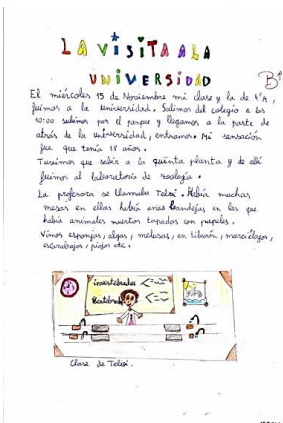 LA VISITA A LA
UNIVERSIDAD
B↑
El miércoles 15 de Noviembre mi clase y la de 4ºA,
fuimos a la universidad. Salimos del colegio a las
10:00 subimos por el parque y llegamos a la parte de
atrás de la universidad, entramos. Mi sensación
fue que tenía 18 años.
Tuvimos que subir a la quinta planta y de allí
fuimos al laboratorio de zoología.
La profesora se llamaba Telvi. Había muchas
mesas en ellas había unas bandejas en las que
había animales muertos tapados con papeles.
Vimos esponjas, algas, medusas, un tiburón, murciélagos,
escarabajos, piojos etc.
invertebrados
Vertebrados
Clase de Telvi.